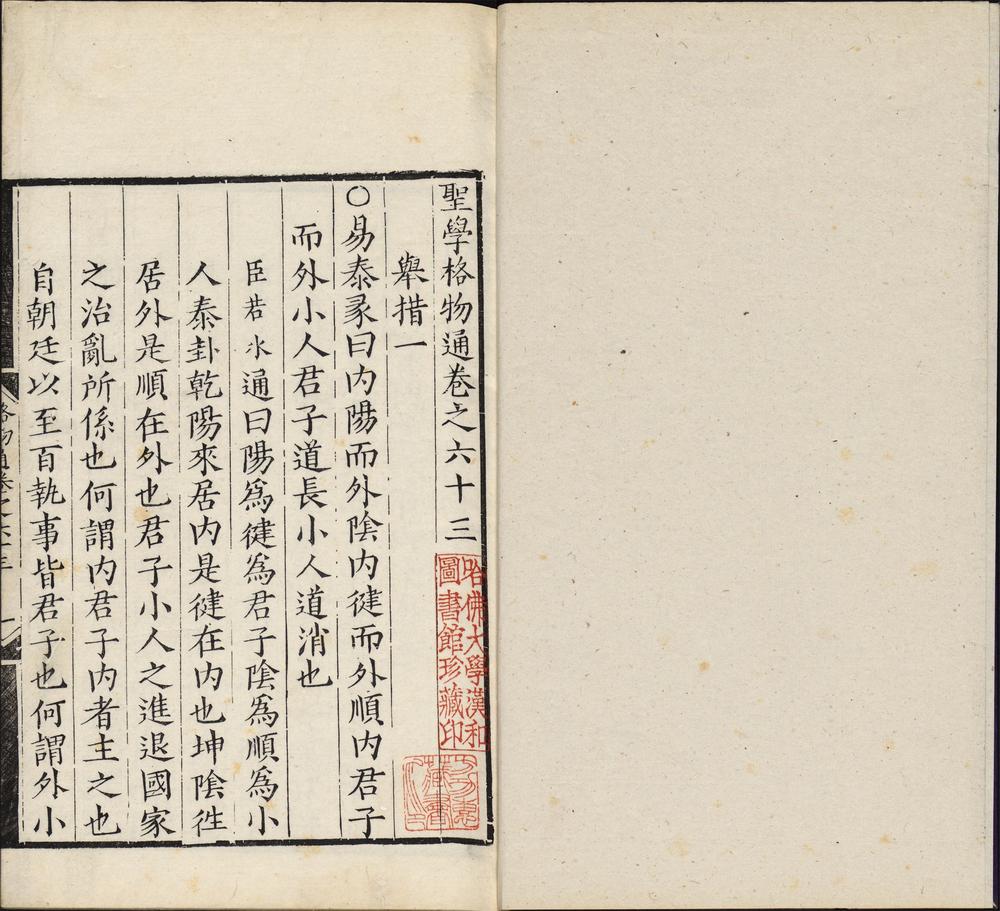 聖學格物通卷之六十三
舉措一
〇易泰彖曰内陽而外陰内健而外順内君子
而外小人君子道長小人道消也
臣若水通曰陽爲健爲君子陰爲順爲小
人泰卦乾陽來居内是健在内也坤陰徃
居外是順在外也君子小人之進退國家
之治亂所係也何謂内君子内者主之也
自朝廷以至百執事皆君子也何謂外小
格物通卷之六十三
一
哈佛大學漢和
圖書館珍藏印